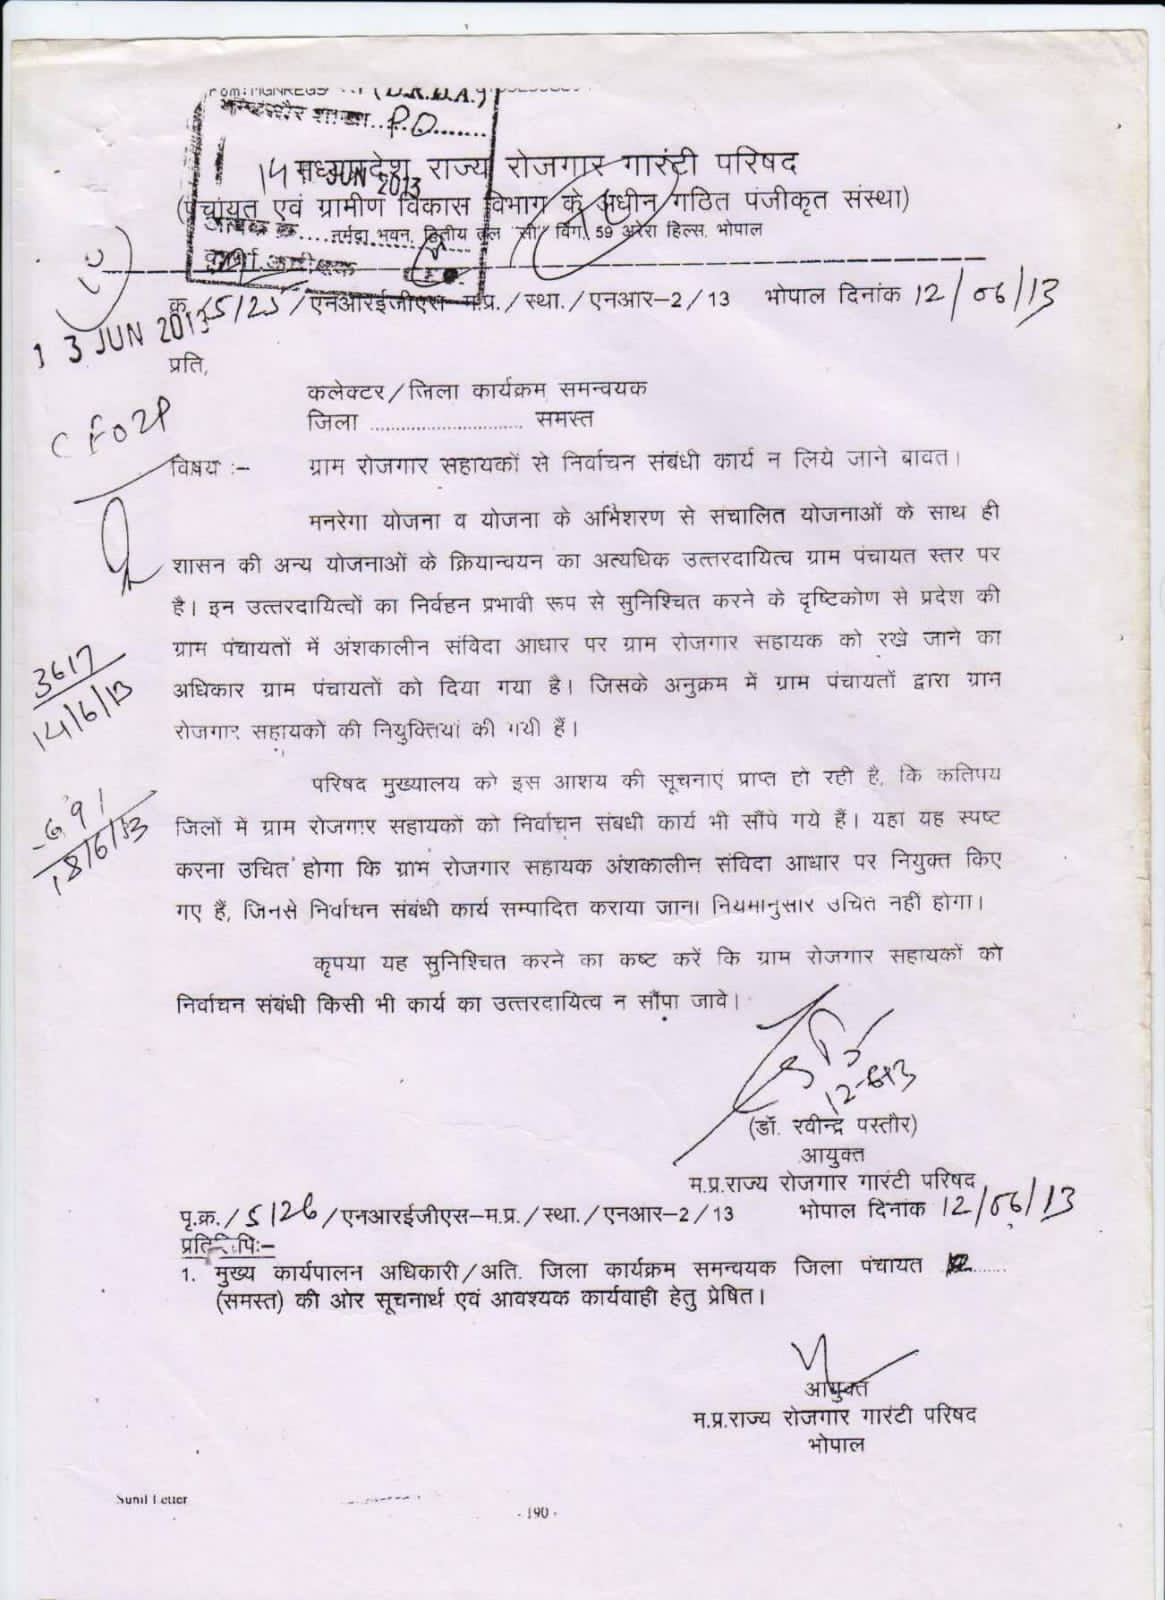 From:MGNREGS (D.R.D.A.)
शाखा..P.O.......
14 JUN 2013
मध्यप्रदेश राज्य रोजगार गारंटी परिषद
(पंचायत एवं ग्रामीण विकास विभाग के अधीन गठित पंजीकृत संस्था)
आवक क्र.....नर्मदा भवन, द्वितीय तल "सी" विंग, 59 अरेरा हिल्स, भोपाल
क्र./5125/एनआरईजीएस-म.प्र./स्था./एनआर-2/13 भोपाल दिनांक 12/06/13
13 JUN 2013
प्रति,
कलेक्टर/जिला कार्यक्रम समन्वयक
जिला ............................ समस्त
विषय :- ग्राम रोजगार सहायकों से निर्वाचन संबंधी कार्य न लिये जाने बावत।
मनरेगा योजना व योजना के अभिशरण से संचालित योजनाओं के साथ ही
शासन की अन्य योजनाओं के क्रियान्वयन का अत्यधिक उत्तरदायित्व ग्राम पंचायत स्तर पर
है। इन उत्तरदायित्वों का निर्वहन प्रभावी रूप से सुनिश्चित करने के दृष्टिकोण से प्रदेश की
ग्राम पंचायतों में अंशकालीन संविदा आधार पर ग्राम रोजगार सहायक को रखे जाने का
अधिकार ग्राम पंचायतों को दिया गया है। जिसके अनुक्रम में ग्राम पंचायतों द्वारा ग्राम
रोजगार सहायकों की नियुक्तियां की गयी हैं।
3617
14/6/13
परिषद मुख्यालय को इस आशय की सूचनाएं प्राप्त हो रही है, कि कतिपय
जिलों में ग्राम रोजगार सहायकों को निर्वाचन संबंधी कार्य भी सौंपे गये हैं। यहा यह स्पष्ट
करना उचित होगा कि ग्राम रोजगार सहायक अंशकालीन संविदा आधार पर नियुक्त किए
गए हैं, जिनसे निर्वाचन संबंधी कार्य सम्पादित कराया जाना नियमानुसार उचित नहीं होगा।
691
18/6/13
कृपया यह सुनिश्चित करने का कष्ट करें कि ग्राम रोजगार सहायकों को
निर्वाचन संबंधी किसी भी कार्य का उत्तरदायित्व न सौंपा जावे।
12-6-13
(डॉ. रवीन्द्र पस्तौर)
आयुक्त
म.प्र.राज्य रोजगार गारंटी परिषद
पृ.क्र./5126/एनआरईजीएस-म.प्र./स्था./एनआर-2/13 भोपाल दिनांक 12/06/13
प्रतिलिपिः-
1. मुख्य कार्यपालन अधिकारी/अति. जिला कार्यक्रम समन्वयक जिला पंचायत ........
(समस्त) की ओर सूचनार्थ एवं आवश्यक कार्यवाही हेतु प्रेषित।
आयुक्त
म.प्र.राज्य रोजगार गारंटी परिषद
भोपाल
Sunil Letter
- 190 -